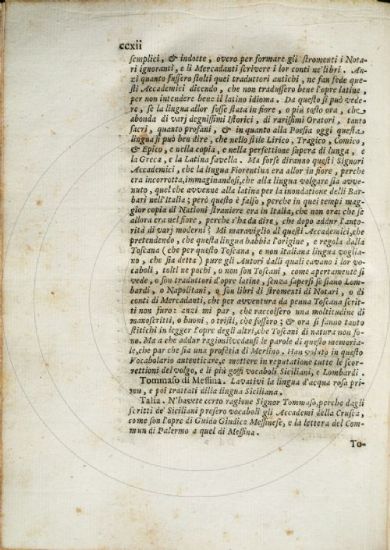 ccxii
semplici, & indotte, overo per formare gli stromenti i Nota-
ri ignoranti, e li Mercadanti scrivere i lor conti ne' libri. An-
zi quanto fussero stolti quei traduttori antichi, ne fan fede que-
sti Accademici dicendo, che non tradussero bene l'opre latine,
per non intendere bene il latino idioma. Da questo si può vede-
re, se la lingua allor fosse stata in fiore, o più tosto ora, che
abonda di varj degnissimi Istorici, di rarissimi Oratori, tanto
sacri, quanto profani, & in quanto alla Poesia oggi questa
lingua si può ben dire, che nello stile Lirico, Tragico, Comico,
& Epico, e nella copia, e nella perfettione supera di lunga, e
la Greca, e la Latina favella. Ma forse diranno questi Signori
Accademici, che la lingua Fiorentina era allor in fiore, perche
era incorrotta, immaginandosi, che alla lingua volgare sia avve-
nuto, quel che avvenne alla latina per la inondatione delli Bar-
bari nell'Italia; però questo è falso, perche in quei tempi mag-
gior copia di Nationi straniere era in Italia, che non ora; che se
allora era nel fiore, perche s'ha da dire, che dopo addur l'auto-
rità di varj moderni; Mi maraviglio di questi Accademici, che
pretendendo, che questa lingua habbia l'origine, e regola dalla
Toscana (che per questo Toscana, e non italiana lingua voglia-
no, che sia detta) pure gli Autori dalli quali cavano i lor vo-
caboli, toltine pochi, o non son Toscani, come apertamente si
vede, o son traduttori d'opre latine, senza sapersi se siano Lom-
bardi, o Napolitani, o son libri di stromenti di Notari, o di
conti di Mercadanti, che per avventura da penna Toscana scrit-
ti non furo: anzi mi par, che raccolsero una moltitudine di
manoscritti, o buoni, o tristi, che fossero; & ora si fanno tanto
stitichi in legger l'opre degli altri, che Toscani di natura non so-
no. Ma a che addur ragioni; vedansi le parole di questo memoria-
le, che par che sia una profetia di Merlino. Han voluto in questo
Vocabolario autenticare, e mettere in reputatione tutte le scor-
rettioni del volgo, e li più goffi vocaboli Siciliani, e Lombardi.
Tommaso di Messina. Lavativi la lingua d'acqua rosa pri-
mu, e poi trattati della lingua Siciliana.
Talia. N'havete certo ragione Signor Tommaso, perche dagli
scritti de' Siciliani presero vocaboli gli Accademi della Crusca,
come son l'opre di Guido Giudice Messinese, e la lettera del Com-
mun di Palermo a quel di Messina.
To-